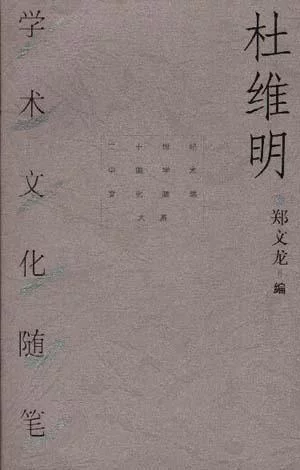 杜维明
学术文化随笔
郑文龙
編
二十世纪
中国学术
文化随笔
大系